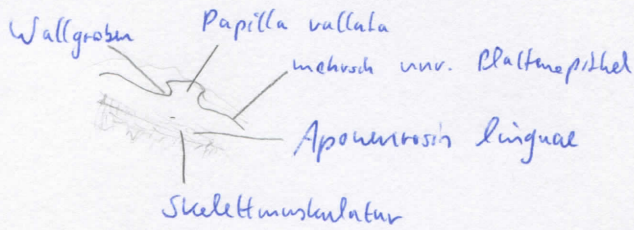 Wallgraben
Papilla vallata
mehrsch unv. Plattenepithel
Aponeurosis linguae
Skelettmuskulatur